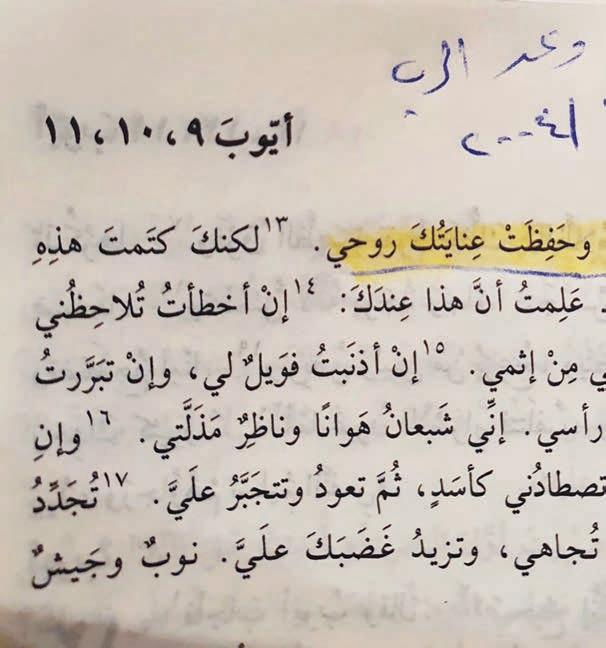 وعد الرب
أيّوبَ ٩، ١٠، ١١
وحَفِظَتْ عِنايَتُكَ روحي. ١٣لكنكَ كتَمتَ هذِهِ
. عَلِمتُ أنَّ هذا عِندَكَ: ١٤إنْ أخطأتُ تُلاحِظُني
ي مِنْ إثمي. ١٥إنْ أذنَبتُ فوَيلٌ لي، وإنْ تبَرَّرتُ
رأسي. إنِّي شَبعانُ هَوانًا وناظِرٌ مَذَلَّتي. ١٦وإنِ
تصطادُني كأسَدٍ، ثُمَّ تعودُ وتتجَبَّرُ علَيَّ. ١٧تُجَدِّدُ
تُجاهي، وتزيدُ غَضَبَكَ علَيَّ. نوبٌ وجَيشٌ